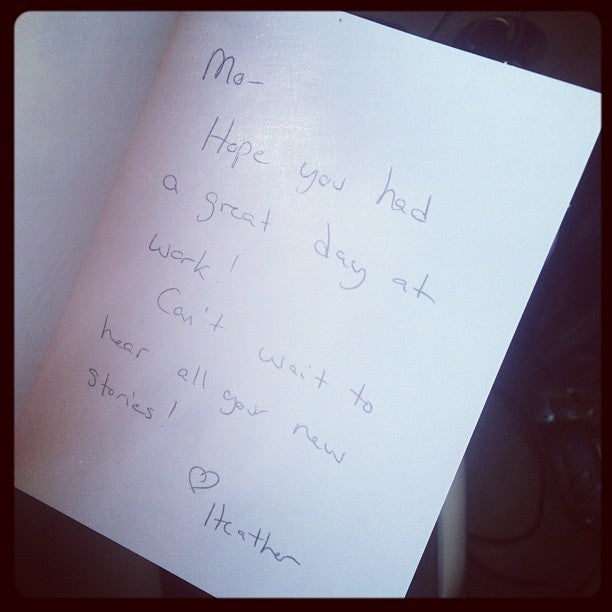 Mo-
Hope you had
a great day at
work!
Can't wait to
hear all your new
stories!
♡
Heather